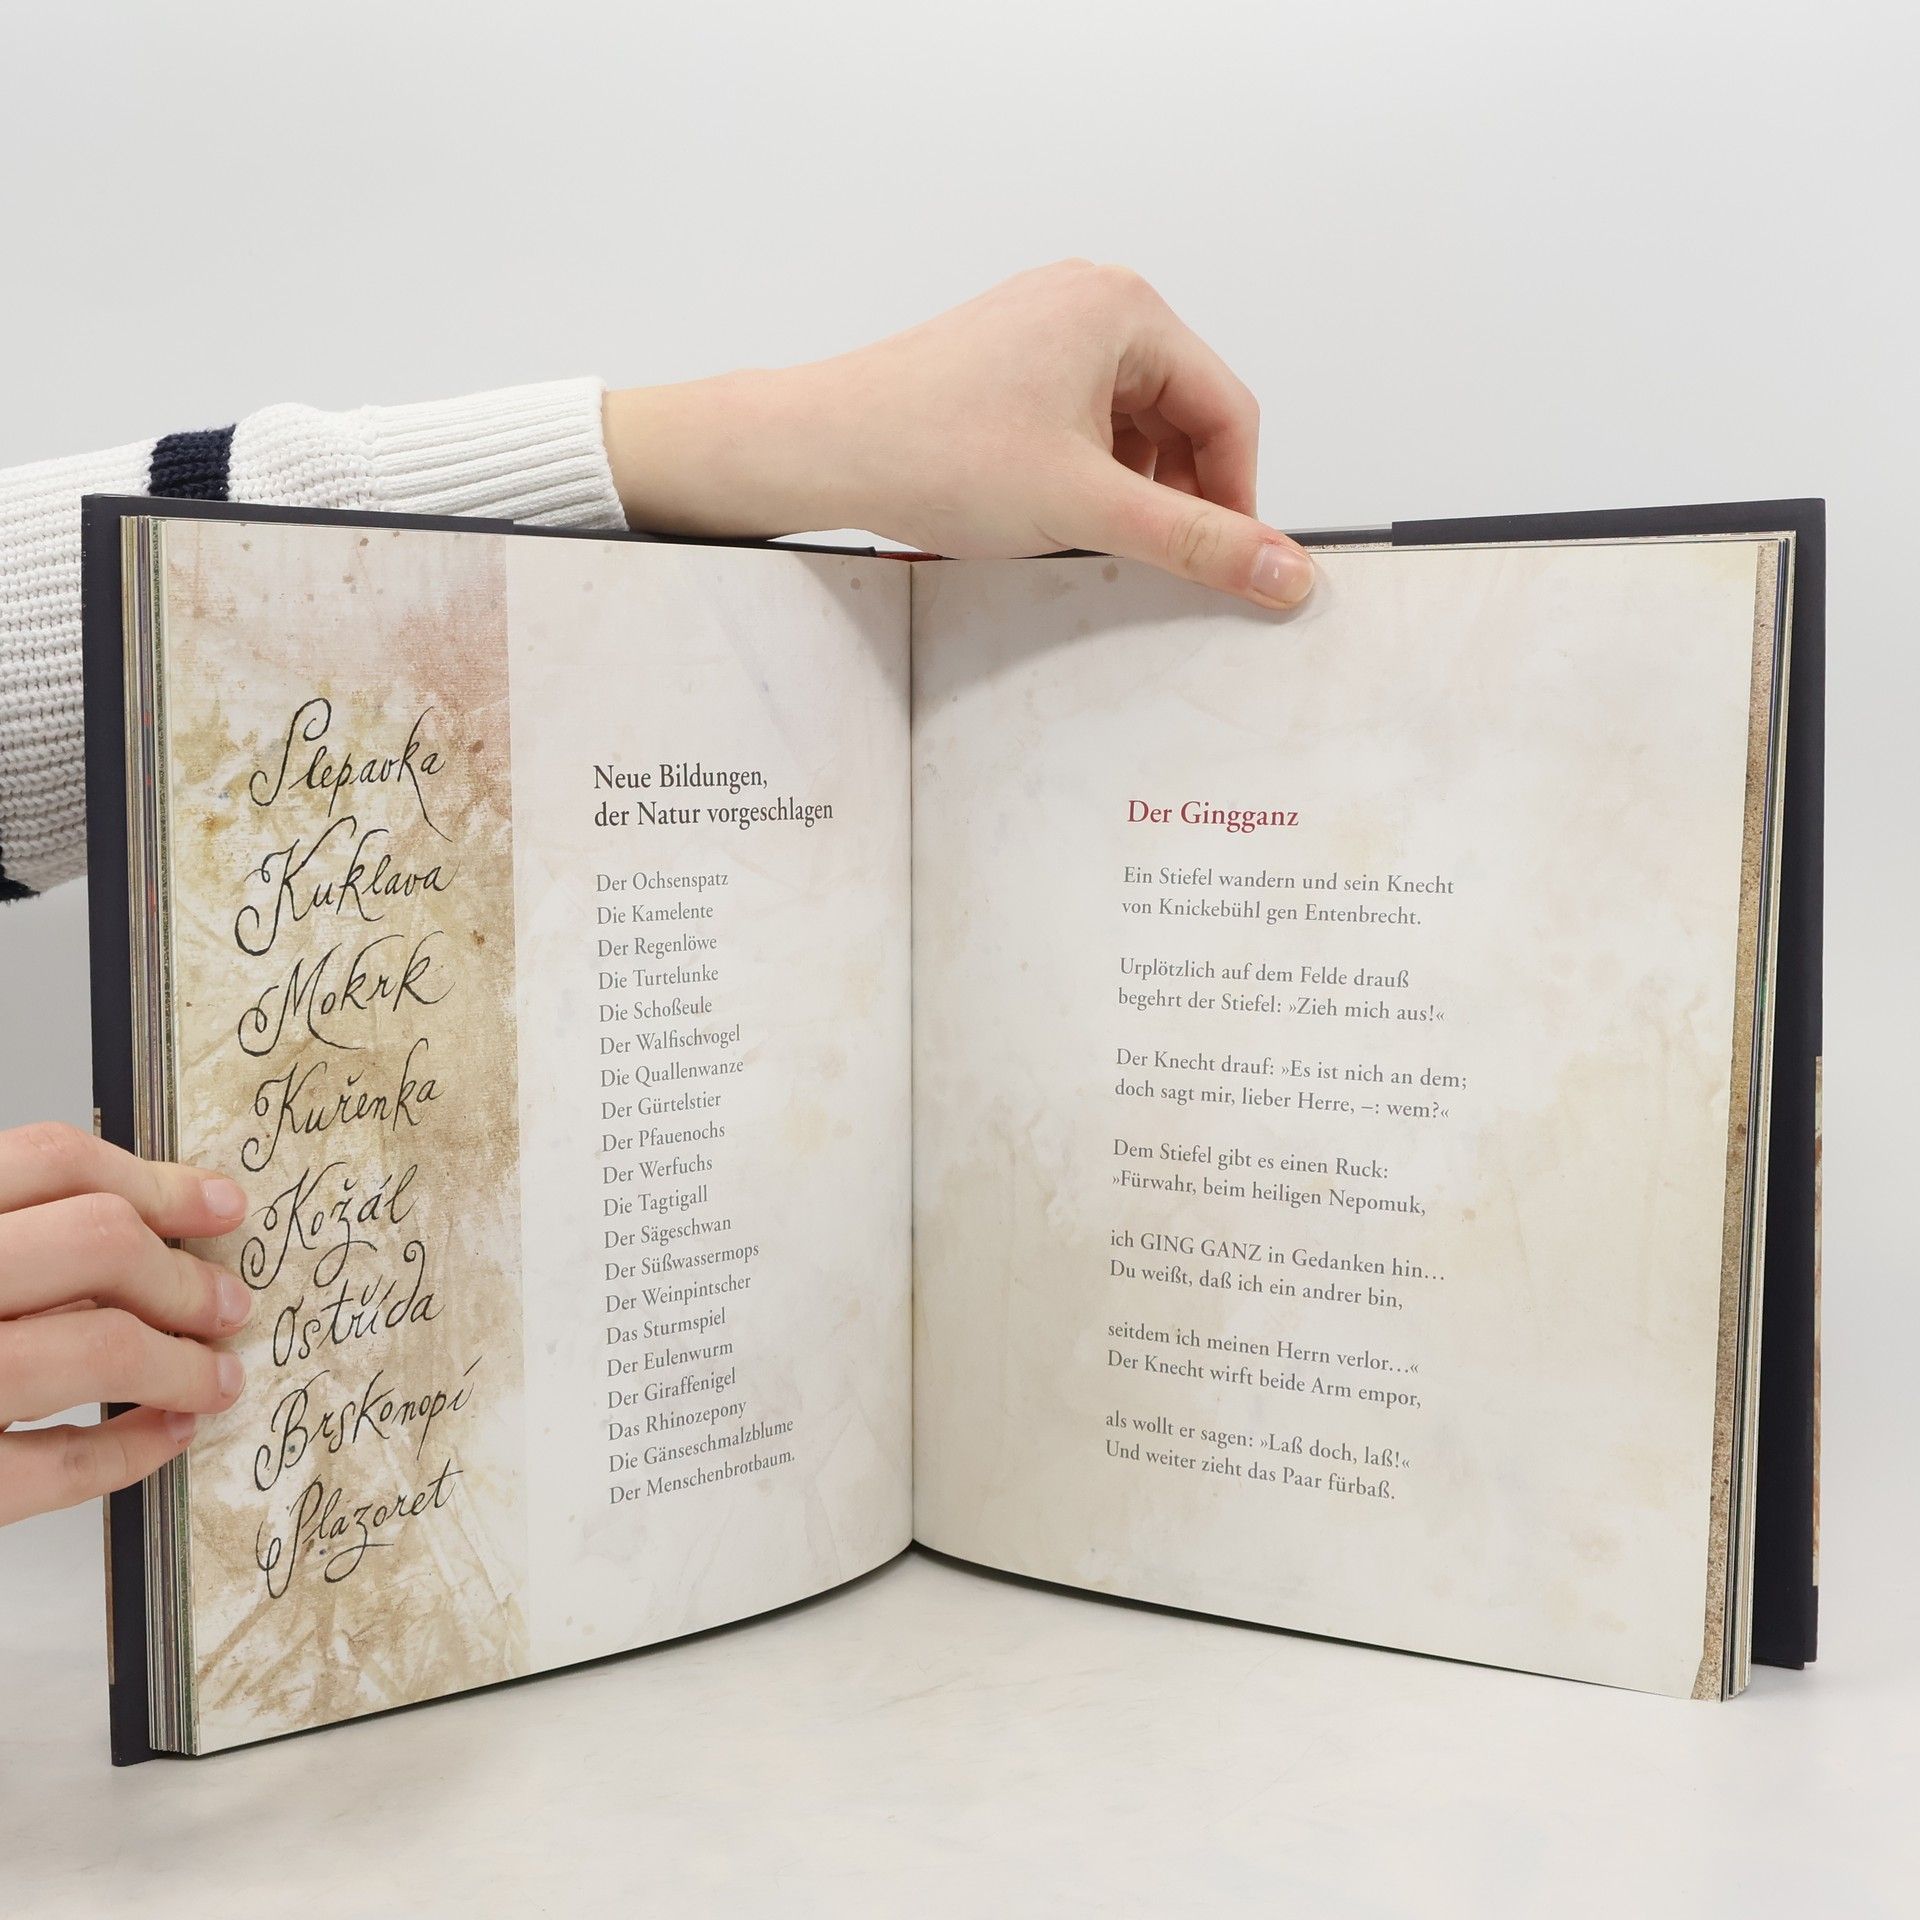 Slepavka
Kuklava
Mokrk
Kuřenka
Kožál
Ostřída
Brskonopí
Plazoret
Neue Bildungen,
der Natur vorgeschlagen
Der Ochsenspatz
Die Kamelente
Der Regenlöwe
Die Turtelunke
Die Schoßeule
Der Walfischvogel
Die Quallenwanze
Der Gürtelstier
Der Pfauenochs
Der Werfuchs
Die Tagtigall
Der Sägeschwan
Der Süßwassermops
Der Weinpintscher
Das Sturmspiel
Der Eulenwurm
Der Giraffenigel
Das Rhinozepony
Die Gänseschmalzblume
Der Menschenbrotbaum.
Der Gingganz
Ein Stiefel wandern und sein Knecht
von Knickebühl gen Entenbrecht.
Urplötzlich auf dem Felde drauß
begehrt der Stiefel: »Zieh mich aus!«
Der Knecht drauf: »Es ist nich an dem;
doch sagt mir, lieber Herre, –: wem?«
Dem Stiefel gibt es einen Ruck:
»Fürwahr, beim heiligen Nepomuk,
ich GING GANZ in Gedanken hin…
Du weißt, daß ich ein andrer bin,
seitdem ich meinen Herrn verlor…«
Der Knecht wirft beide Arm empor,
als wollt er sagen: »Laß doch, laß!«
Und weiter zieht das Paar fürbaß.